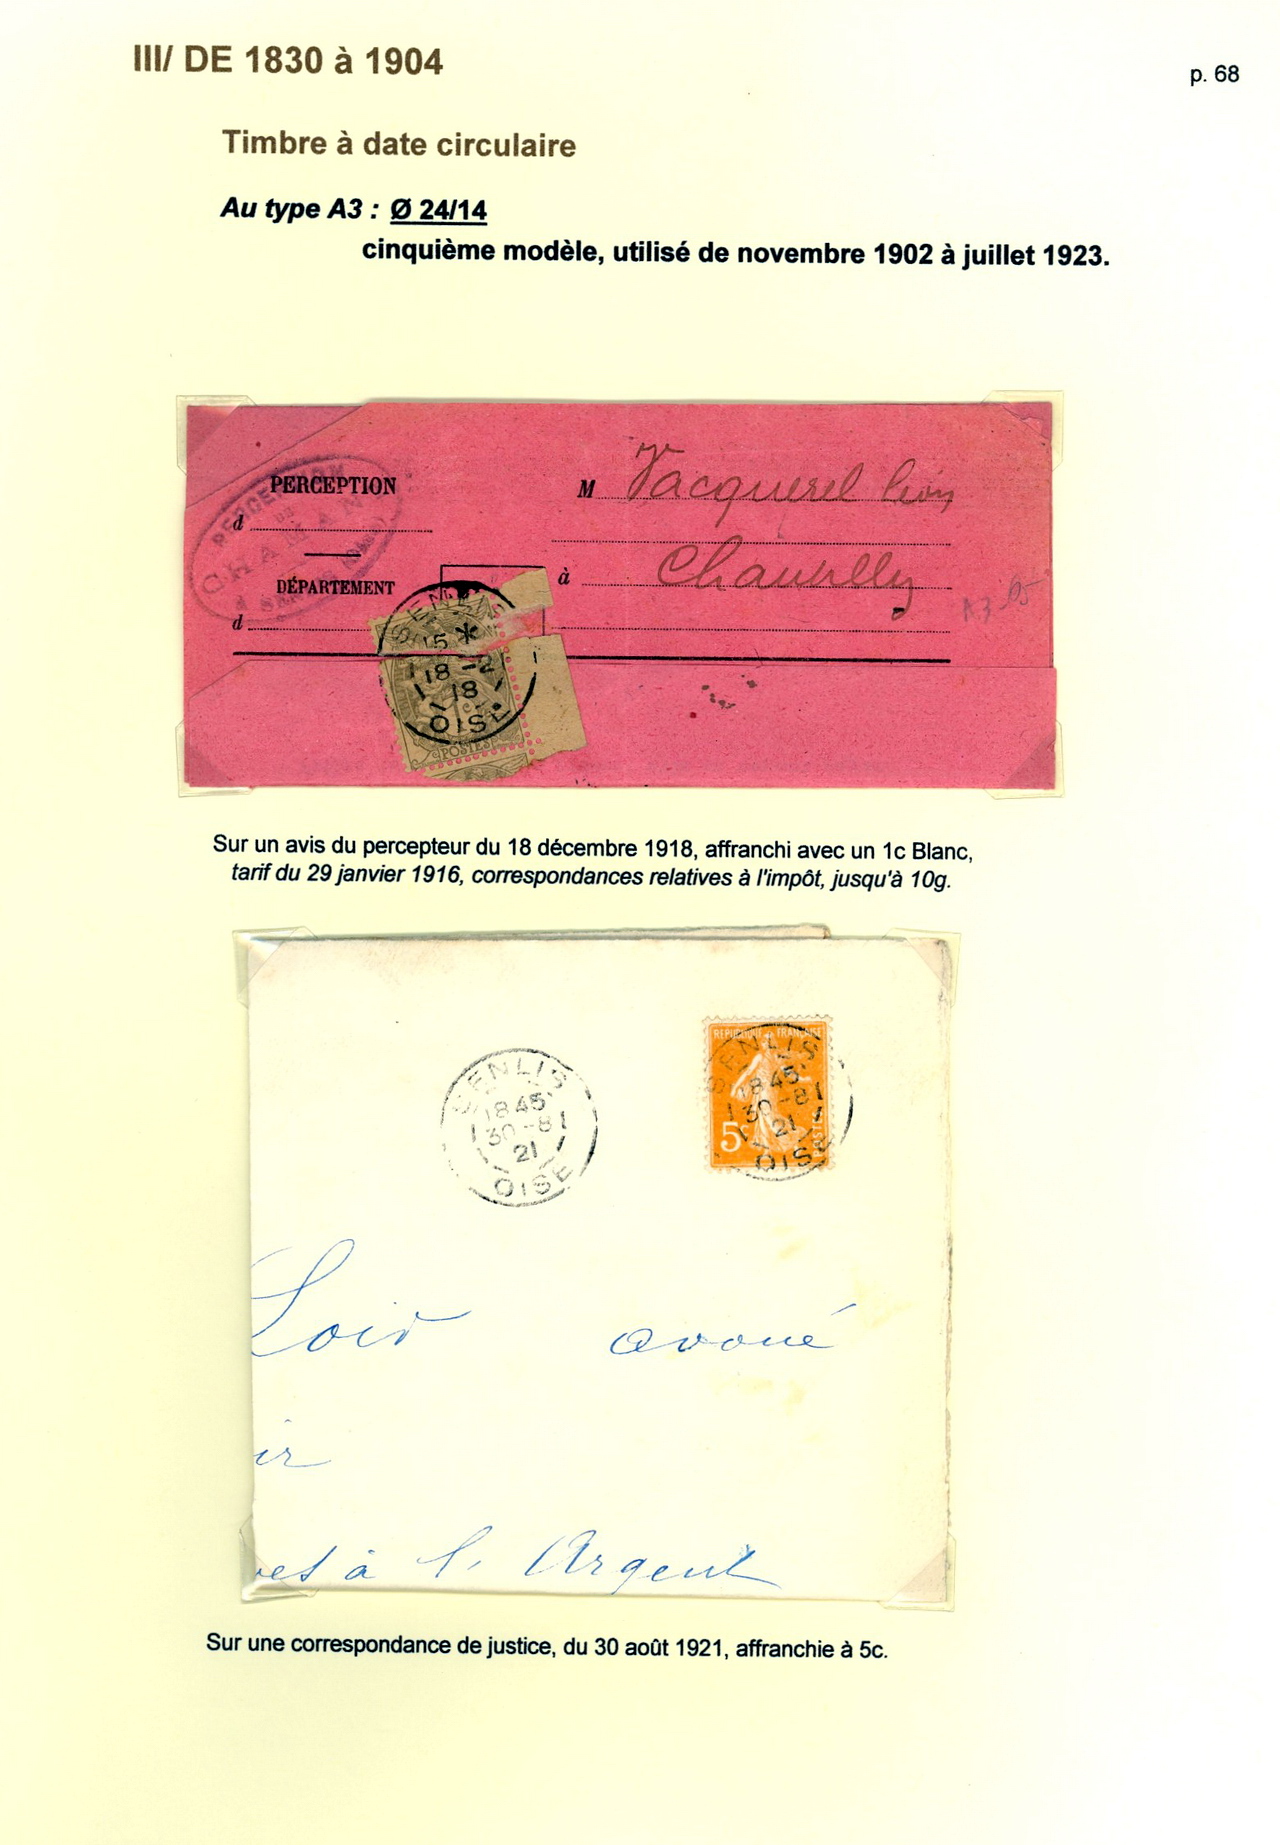 III/ DE 1830 à 1904
p. 68
Timbre à date circulaire
Au type A3 : Ø 24/14
cinquième modèle, utilisé de novembre 1902 à juillet 1923.
PERCEPTION
d
DÉPARTEMENT
d
M Vacquerel Léon
à
SENLIS
15 *
18 -2
18
OISE
POSTES
Sur un avis du percepteur du 18 décembre 1918, affranchi avec un 1c Blanc,
tarif du 29 janvier 1916, correspondances relatives à l'impôt, jusqu'à 10g.
SENLIS
18 45
30 -8
21
OISE
REPUBLIQUE FRANÇAISE
SENLIS
18 45
30 -8
21
5c
POSTES
OISE
Loir avoué
ir
à l. Argent
Sur une correspondance de justice, du 30 août 1921, affranchie à 5c.